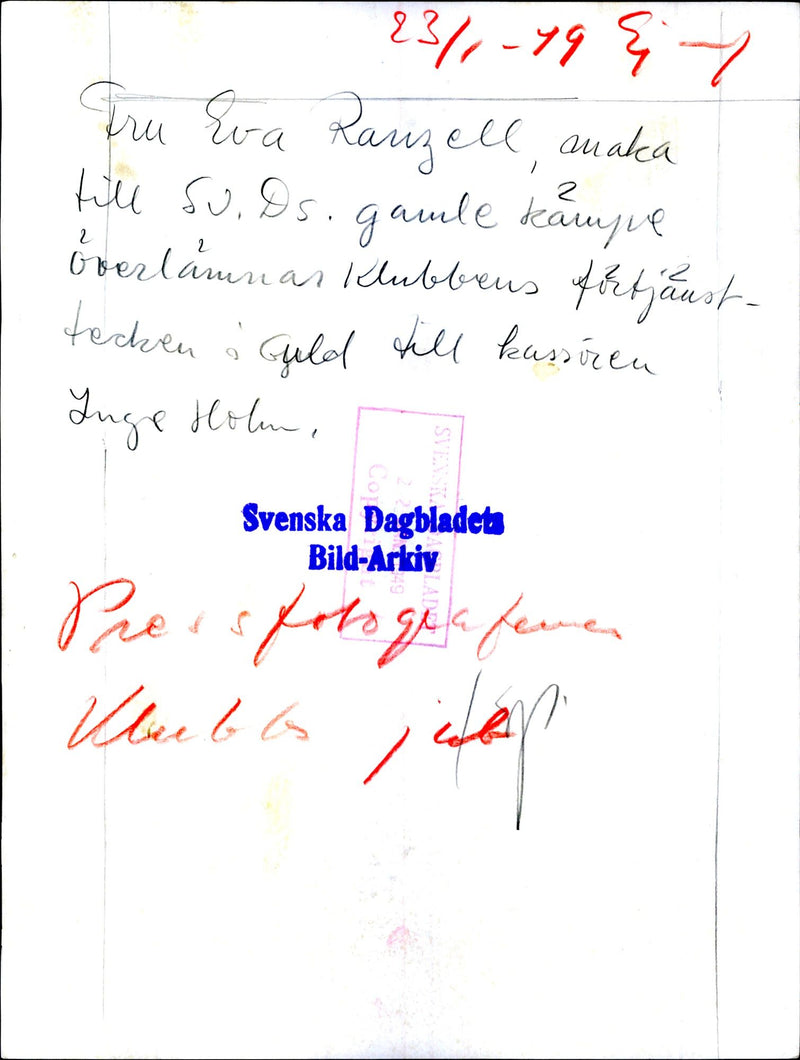 23/1 - 49 Ej
Fru Eva Ranzell, maka
till Sv. Ds. gamle kämpe
överlämnar Klubbens förtjänst-
tecken i Guld till kassören
Inge Holm.
SVENSKA DAGBLADET
Copyright
Svenska Dagbladets
Bild-Arkiv
Pressfotografernas
Klubbs jub